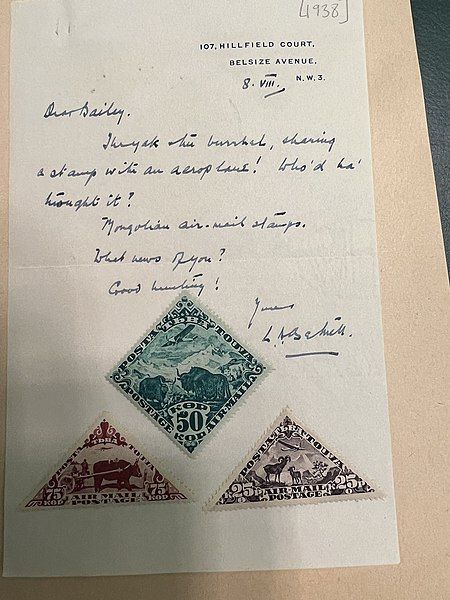 [1938]
107, HILLFIELD COURT,
BELSIZE AVENUE,
N.W.3.
8. VIII.
Dear Bailey.
The yak & the burrhel, sharing
a stamp with an aeroplane! Who'd ha'
thought it?
Mongolian air-mail stamps.
What news of you?
Good hunting!
Yours
POSTA TOUVA
POSTAGE AIR MAIL
50
KOP KOP
POSTA TOUVA
75 AIR MAIL 75
KOP POSTAGE KOP
POSTA TOUVA
25 AIR-MAIL 25
POSTAGE